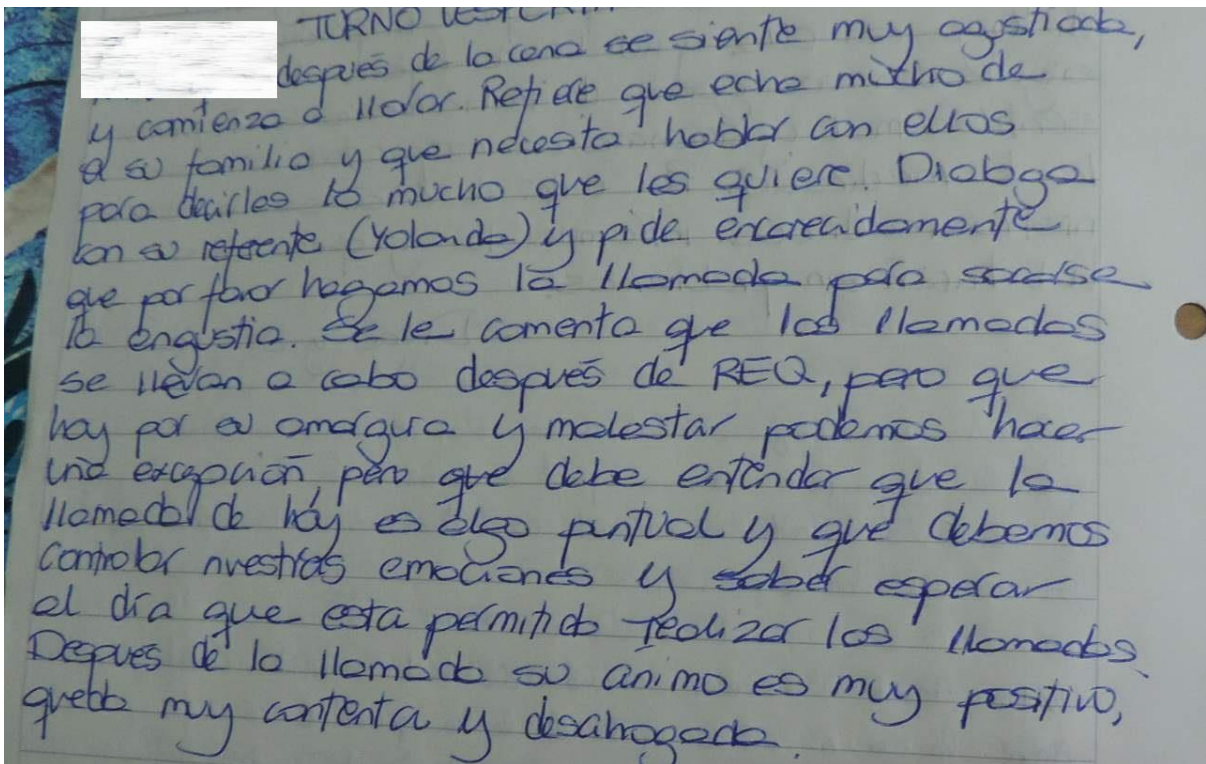 TURNO VESPERTINO
después de la cena se siente muy agustiada,
y comienza a llorar. Refiere que echa mucho de
a su familia y que necesita hablar con ellos
para decirles lo mucho que les quiere. Dialoga
con su referente (Yolanda) y pide encarecidamente
que por favor hagamos la llamada para sacarse
la angustia. Se le comenta que las llamadas
se llevan a cabo después de REQ, pero que
hoy por su amargura y malestar podemos hacer
una excepción, pero que debe entender que la
llamada de hoy es algo puntual y que debemos
controlar nuestras emociones y saber esperar
el día que esta permitido realizar las llamadas.
Depues de la llamada su animo es muy positivo,
queda muy contenta y desahogada.